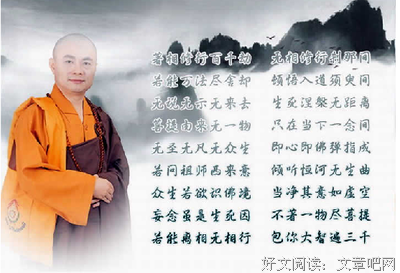 若相修行百千劫 无相修行刹那间
若能万法尽舍却 顿悟入道须臾间
无说无示无来去 生死涅槃无距离
菩提由来无一物 只在当下一念间
无圣无凡无众生 即心即佛弹指成
若问祖师西来意 倾听恒河无生曲
众生若欲识佛境 当净其意如虚空
妄念虽是生死因 不著一物尽菩提
若能离相无相行 包你大智遍三千
好文阅读:文章吧网